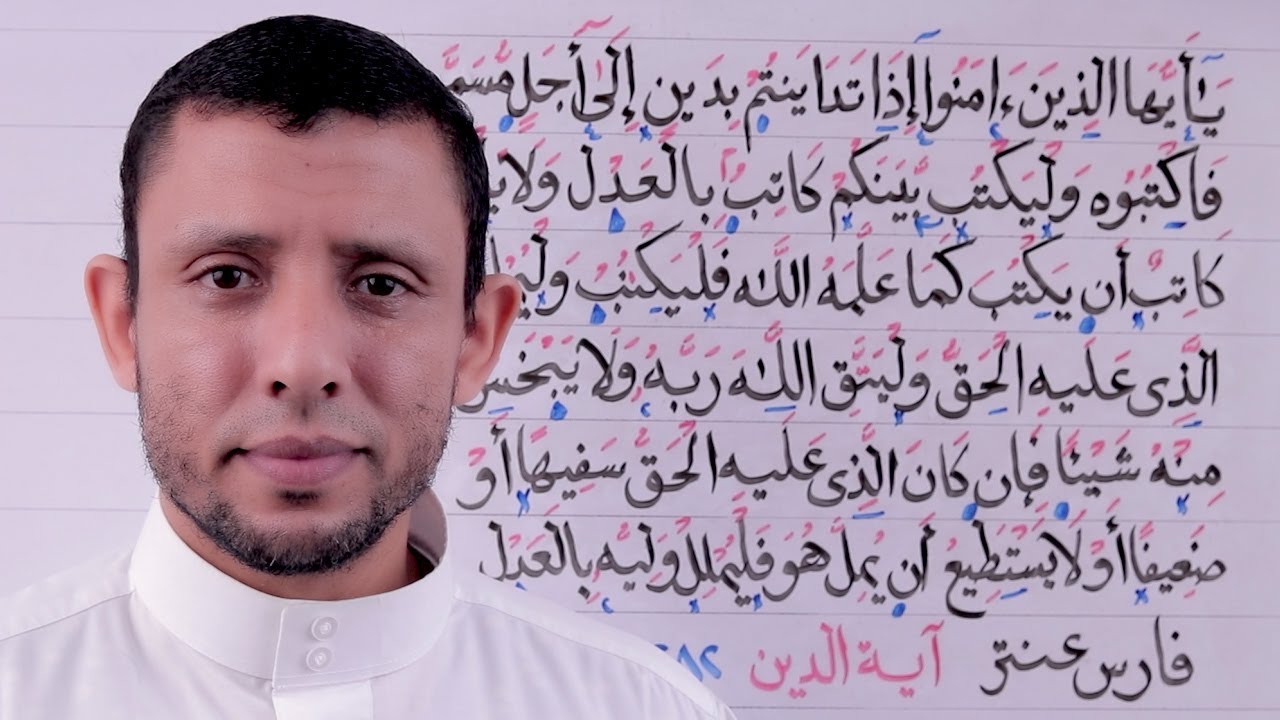 يَـٰٓأَيُّهَا الَّذِينَ ءَامَنُوٓا إِذَا تَدَايَنتُم بِدَيْنٍ إِلَىٰٓ أَجَلٍ مُّسَمًّى
فَاكْتُبُوهُ وَلْيَكْتُب بَّيْنَكُمْ كَاتِبٌ بِالْعَدْلِ وَلَا
كَاتِبٌ أَن يَكْتُبَ كَمَا عَلَّمَهُ اللَّهُ فَلْيَكْتُبْ
الَّذِى عَلَيْهِ الْحَقُّ وَلْيَتَّقِ اللَّهَ رَبَّهُ وَلَا يَبْخَسْ
مِنْهُ شَيْئًا فَإِن كَانَ الَّذِى عَلَيْهِ الْحَقُّ سَفِيهًا أَوْ
ضَعِيفًا أَوْ لَا يَسْتَطِيعُ أَن يُمِلَّ هُوَ فَلْيُمْلِلْ وَلِيُّهُ بِالْعَدْلِ
فارس عنتر آية الدين ٢٨٢